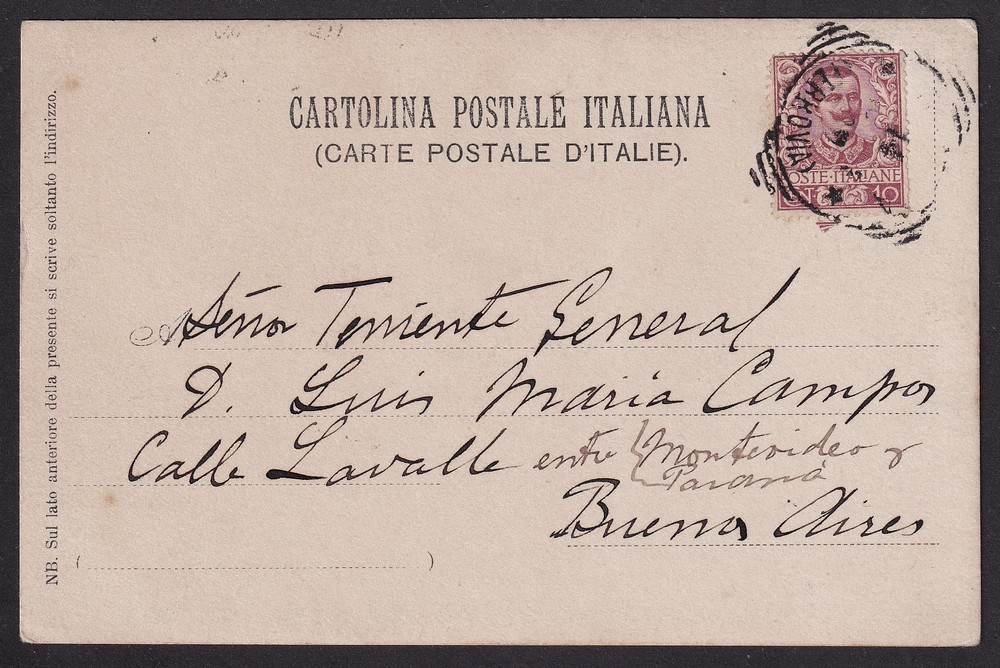 CARTOLINA POSTALE ITALIANA
(CARTE POSTALE D'ITALIE).
FERROVIA
POSTE·ITALIANE
CN· 10
Al Señor Teniente General
D. Luis Maria Campos
Calle Lavalle entre { Montevideo y
Paraná
Buenos Aires
( )
NB. Sul lato anteriore della presente si scrive soltanto l'indirizzo.